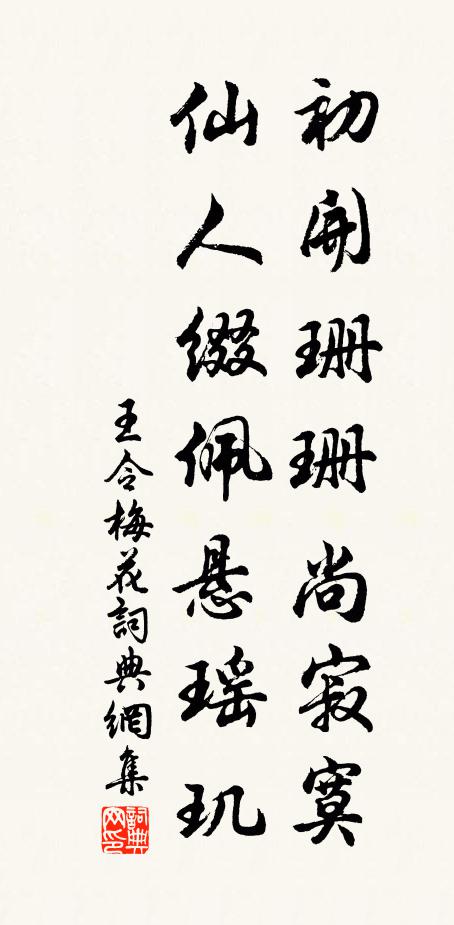 初開珊珊尚寂寞
仙人缀佩悬瑶玑
王令梅花詞典網集
詞典网印